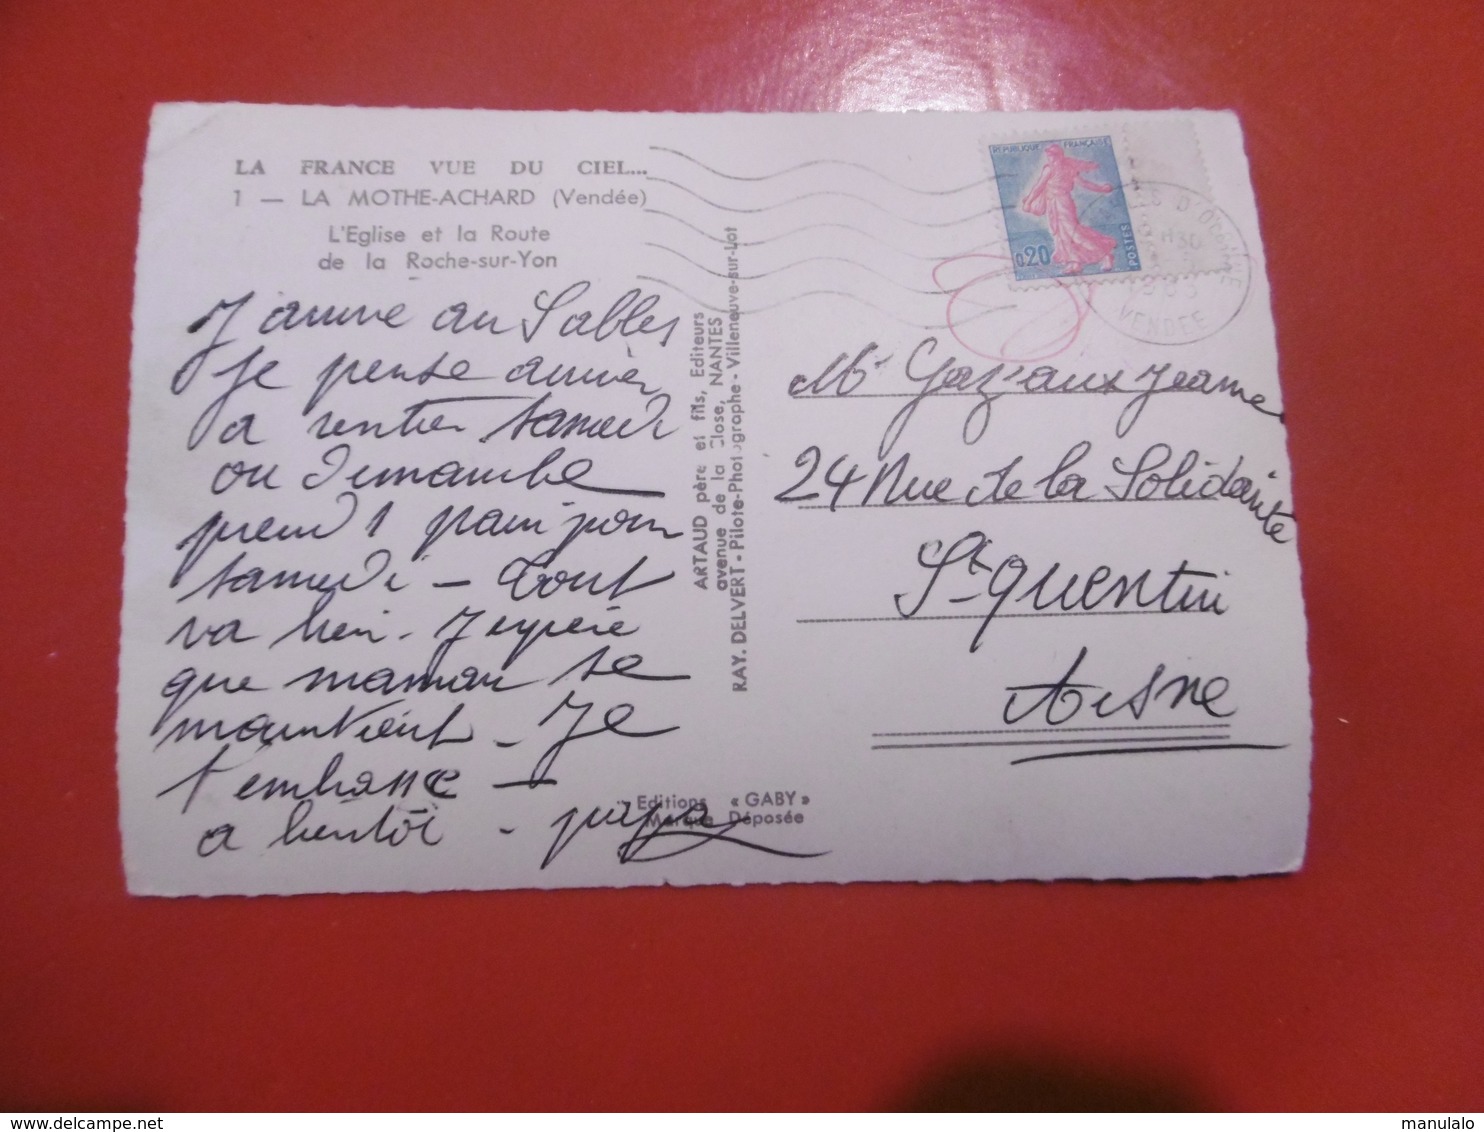 LA FRANCE VUE DU CIEL...
1 — LA MOTHE-ACHARD (Vendée)
L'Eglise et la Route
de la Roche-sur-Yon
J'arrive au Sables
Je pense arriver
a rentrer samedi
ou Dimanche
prend 1 pain pour
samedi — Tout
va bien - J'espère
que maman se
maintient - Je
t'embrasse —
a bientôt - papa
ARTAUD père et fils, Editeurs
avenue de la Close, NANTES
RAY. DELVERT - Pilote-Photographe - Villeneuve-sur-Lot
Editions « GABY »
Marque Déposée
REPUBLIQUE FRANÇAISE
0,20
POSTES
H30
VENDEE
Jeanne
24 Rue de la Solidarité
St Quentin
Aisne
www.delcampe.net
manulalo